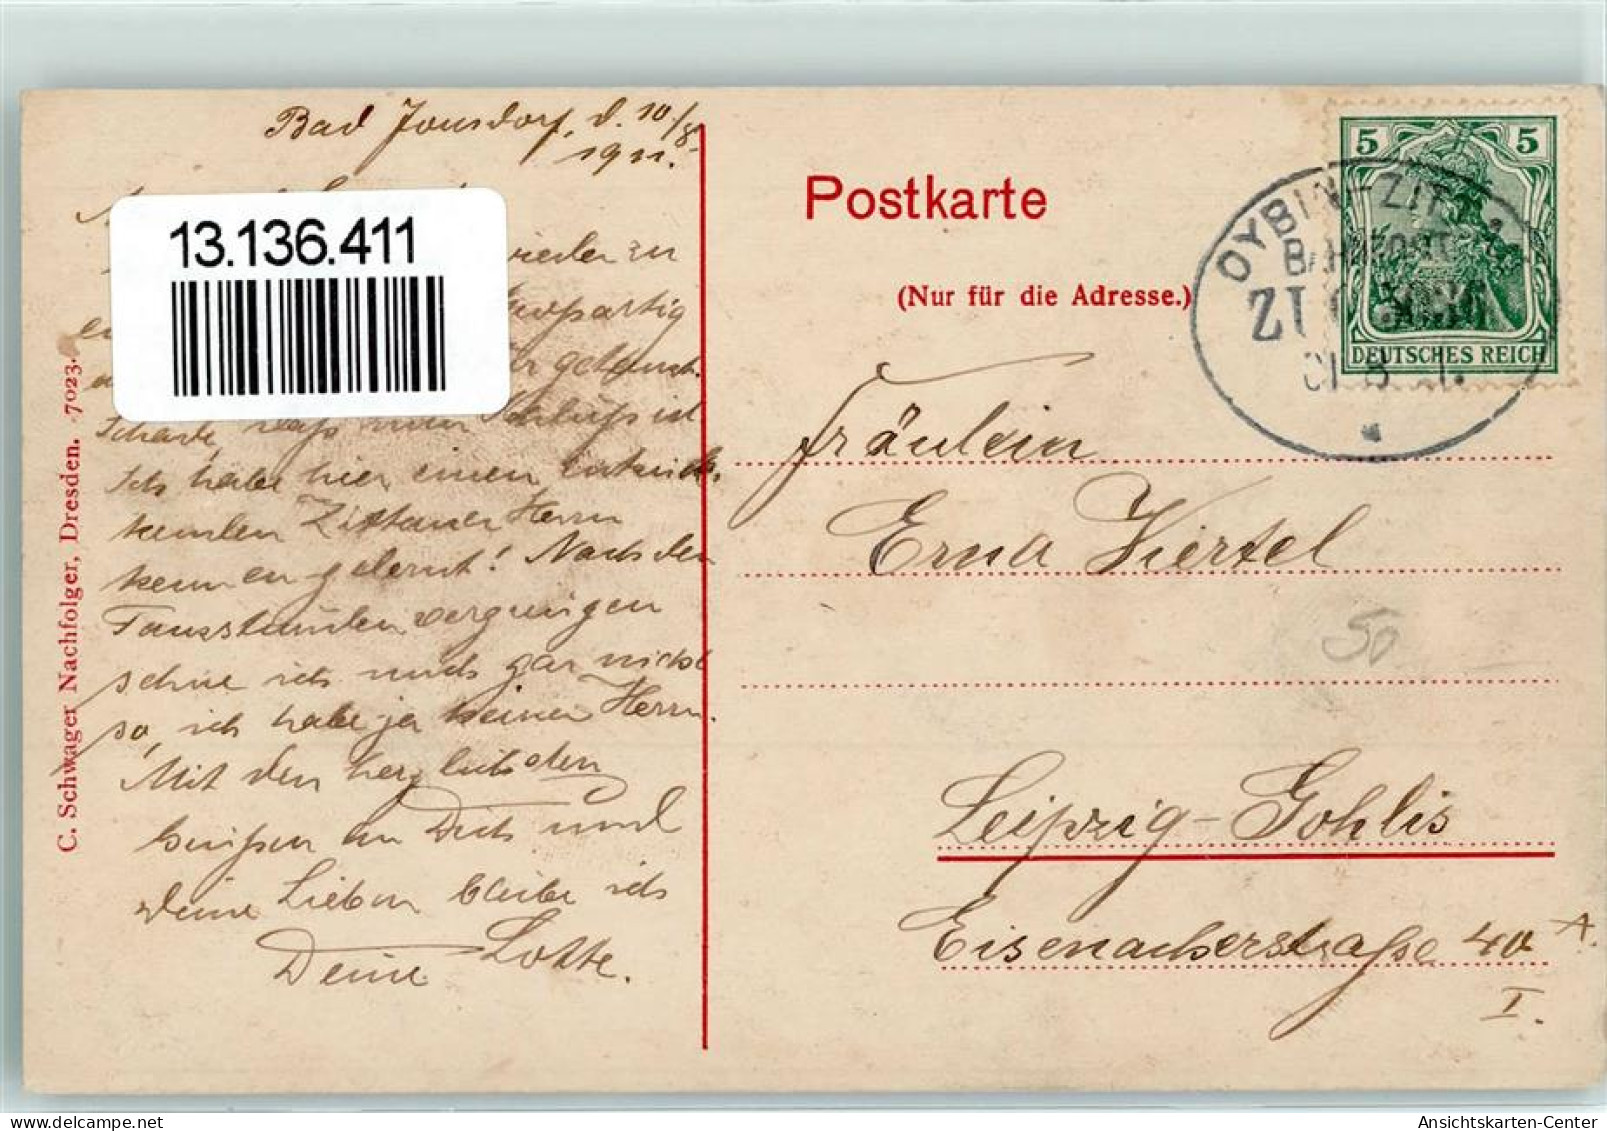 Bad Jonsdorf, d. 10/8.
1911.
13.136.411
wieder zu
Großartig
getanzt.
Schade, daß nun Schluß ist.
Ich habe hier einen entzük-
kenden Zittauer Herrn
kennen gelernt! Nach den
Tanzstundenvergnügen
sehne ich mich gar nicht
so, ich habe ja keinen Herrn.
Mit den herzlichsten
Grüßen an Dich und
Deine Lieben bleibe ich
Deine Lotte.
C. Schwager Nachfolger, Dresden. 7023.
Postkarte
(Nur für die Adresse.)
5 5
DEUTSCHES REICH
OYBIN-ZITTAU
BAHNPOST
ZUG
Fräulein
Erna Viertel
50
Leipzig-Gohlis
Eisenacherstraße 40 A.
I.
Ansichtskarten-Center